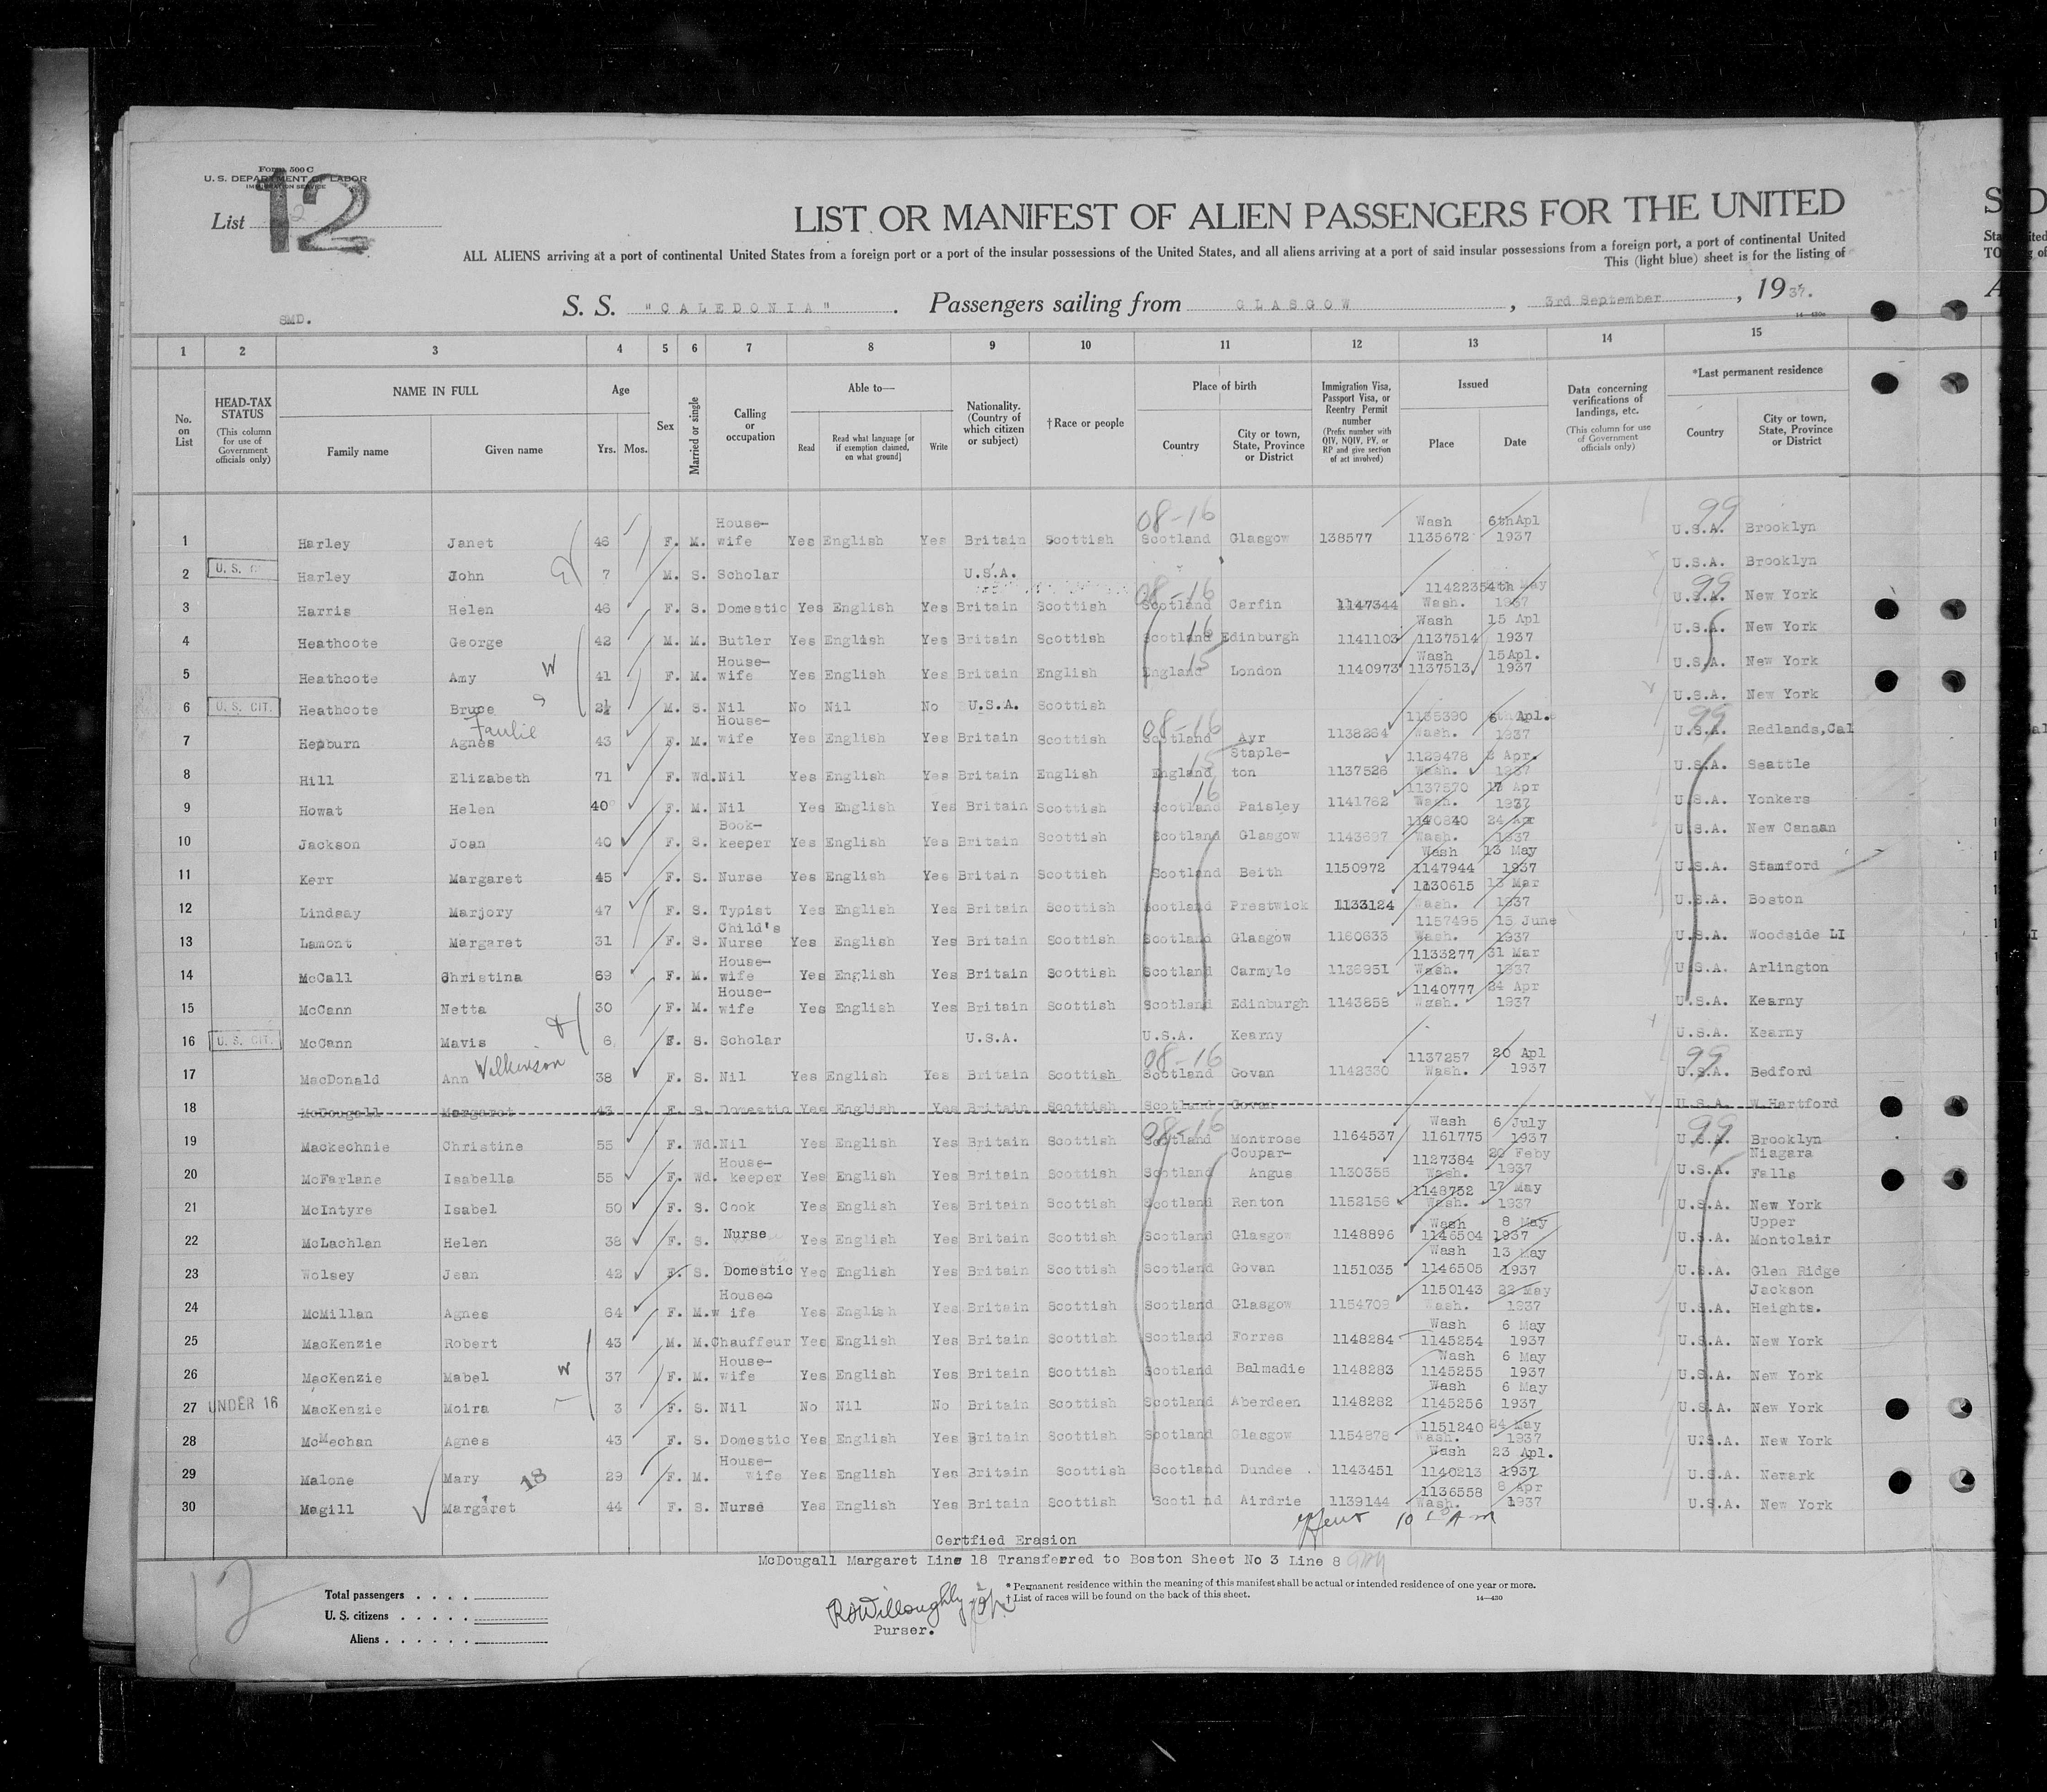 Form 500 C
U. S. DEPARTMENT OF LABOR
IMMIGRATION SERVICE
List 12
LIST OR MANIFEST OF ALIEN PASSENGERS FOR THE UNITED
ALL ALIENS arriving at a port of continental United States from a foreign port or a port of the insular possessions of the United States, and all aliens arriving at a port of said insular possessions from a foreign port, a port of continental United
This (light blue) sheet is for the listing of
SMD.
S. S. "CALEDONIA". Passengers sailing from GLASGOW, 3rd September, 1937.
14—430
1 2 3 4 5 6 7 8 9 10 11 12 13 14 15
No. on List
HEAD-TAX STATUS (This column for use of Government officials only)
NAME IN FULL Family name Given name
Age Yrs. Mos.
Sex
Married or single
Calling or occupation
Able to— Read Read what language [or if exemption claimed, on what ground] Write
Nationality. (Country of which citizen or subject)
†Race or people
Place of birth Country City or town, State, Province or District
Immigration Visa, Passport Visa, or Reentry Permit number (Prefix number with QIV, NQIV, PV, or RP and give section of act involved)
Issued Place Date
Data concerning verifications of landings, etc. (This column for use of Government officials only)
*Last permanent residence Country City or town, State, Province or District
1 Harley Janet 46 F. M. House-wife Yes English Yes Britain Scottish 08-16 Scotland Glasgow 138577 Wash 1135672 6th Apl 1937 99 U.S.A. Brooklyn
2 U. S. C Harley John 7 M. S. Scholar U.S.A. U.S.A. Brooklyn
3 Harris Helen 46 F. S. Domestic Yes English Yes Britain Scottish 08-16 Scotland Carfin 1147344 1142235 Wash. 4th May 1937 99 U.S.A. New York
4 Heathcote George 42 M. M. Butler Yes English Yes Britain Scottish 16 Scotland Edinburgh 1141103 Wash 1137514 15 Apl 1937 U.S.A. New York
5 Heathcote Amy W 41 F. M. House-wife Yes English Yes Britain English 15 England London 1140973 Wash 1137513 15 Apl. 1937 U.S.A. New York
6 U. S. CIT. Heathcote Bruce S M. S. Nil No Nil No U.S.A. Scottish U.S.A. New York
7 Hepburn Agnes 43 F. M. House-wife Yes English Yes Britain Scottish 08-16 Scotland Ayr 1138264 1135390 Wash. 6 Apl. 1937 99 U.S.A. Redlands,Cal
8 Hill Elizabeth 71 F. Wd. Nil Yes English Yes Britain English 15 England Staple-ton 1137526 Wash. 2 Apr. 1937 U.S.A. Seattle
9 Howat Helen 40 F. M. Nil Yes English Yes Britain Scottish 16 Scotland Paisley 1141762 1137570 Wash. Apr 1937 U.S.A. Yonkers
10 Jackson Joan 40 F. S. Book-keeper Yes English Yes Britain Scottish Scotland Glasgow 1143697 1140840 Wash. 24 Apr 1937 U.S.A. New Canaan
11 Kerr Margaret 45 F. S. Nurse Yes English Yes Britain Scottish Scotland Beith 1150972 Wash 1147944 13 May 1937 U.S.A. Stamford
12 Lindsay Marjory 47 F. S. Typist Yes English Yes Britain Scottish Scotland Prestwick 1133124 1130615 Wash. 13 Mar 1937 U.S.A. Boston
13 Lamont Margaret 31 F. S. Child's Nurse Yes English Yes Britain Scottish Scotland Glasgow 1160633 1157495 Wash. 15 June 1937 U.S.A. Woodside LI
14 McCall Christina 69 F. M. House-wife Yes English Yes Britain Scottish Scotland Carmyle 1136951 1133277 Wash. 31 Mar 1937 U.S.A. Arlington
15 McCann Netta 30 F. M. House-wife Yes English Yes Britain Scottish Scotland Edinburgh 1143858 1140777 Wash. 24 Apr 1937 U.S.A. Kearny
16 U. S. CIT. McCann Mavis 6 F. S. Scholar U.S.A. U.S.A. Kearny U.S.A. Kearny
17 MacDonald Ann Wilkinson 38 F. S. Nil Yes English Yes Britain Scottish 08-16 Scotland Govan 1142330 1137257 Wash. 20 Apl 1937 99 U.S.A. Bedford
18 McDougall Margaret 43 F. S. Domestic Yes English Yes Britain Scottish Scotland Govan U.S.A. W.Hartford
19 Mackechnie Christine 55 F. Wd. Nil Yes English Yes Britain Scottish 08-16 Scotland Montrose 1164537 Wash 1161775 6 July 1937 99 U.S.A. Brooklyn
20 McFarlane Isabella 55 F. Wd. House-keeper Yes English Yes Britain Scottish Scotland Coupar-Angus 1130355 1127384 Wash. 20 Feby 1937 U.S.A. Niagara Falls
21 McIntyre Isabel 50 F. S. Cook Yes English Yes Britain Scottish Scotland Renton 1152156 1148752 Wash. 17 May 1937 U.S.A. New York
22 McLachlan Helen 38 F. S. Nurse Yes English Yes Britain Scottish Scotland Glasgow 1148896 Wash 1146504 8 May 1937 U.S.A. Upper Montclair
23 Wolsey Jean 42 F. S. Domestic Yes English Yes Britain Scottish Scotland Govan 1151035 Wash 1146505 13 May 1937 U.S.A. Glen Ridge
24 McMillan Agnes 64 F. M. House wife Yes English Yes Britain Scottish Scotland Glasgow 1154709 1150143 Wash. 22 May 1937 U.S.A. Jackson Heights.
25 MacKenzie Robert 43 M. M. Chauffeur Yes English Yes Britain Scottish Scotland Forres 1148284 Wash 1145254 6 May 1937 U.S.A. New York
26 MacKenzie Mabel W 37 F. M. House-wife Yes English Yes Britain Scottish Scotland Balmadie 1148283 Wash 1145255 6 May 1937 U.S.A. New York
27 UNDER 16 MacKenzie Moira 3 F. S. Nil No Nil No Britain Scottish Scotland Aberdeen 1148282 Wash 1145256 6 May 1937 U.S.A. New York
28 McMechan Agnes 43 F. S. Domestic Yes English Yes Britain Scottish Scotland Glasgow 1154878 1151240 Wash. 24 May 1937 U.S.A. New York
29 Malone Mary 18 29 F. M. House-wife Yes English Yes Britain Scottish Scotland Dundee . 1143451 Wash 1140213 23 Apl. 1937 U.S.A. Newark
30 Magill Margaret 44 F. S. Nurse Yes English Yes Britain Scottish Scotl nd Airdrie 1139144 1136558 Wash. 8 Apr 1937 U.S.A. New York
Certfied Erasion
McDougall Margaret Line 18 Transferred to Boston Sheet No 3 Line 8
12
Total passengers
U. S. citizens
Aliens
RSWilloughby
Purser.
* Permanent residence within the meaning of this manifest shall be actual or intended residence of one year or more.
† List of races will be found on the back of this sheet.
14—430